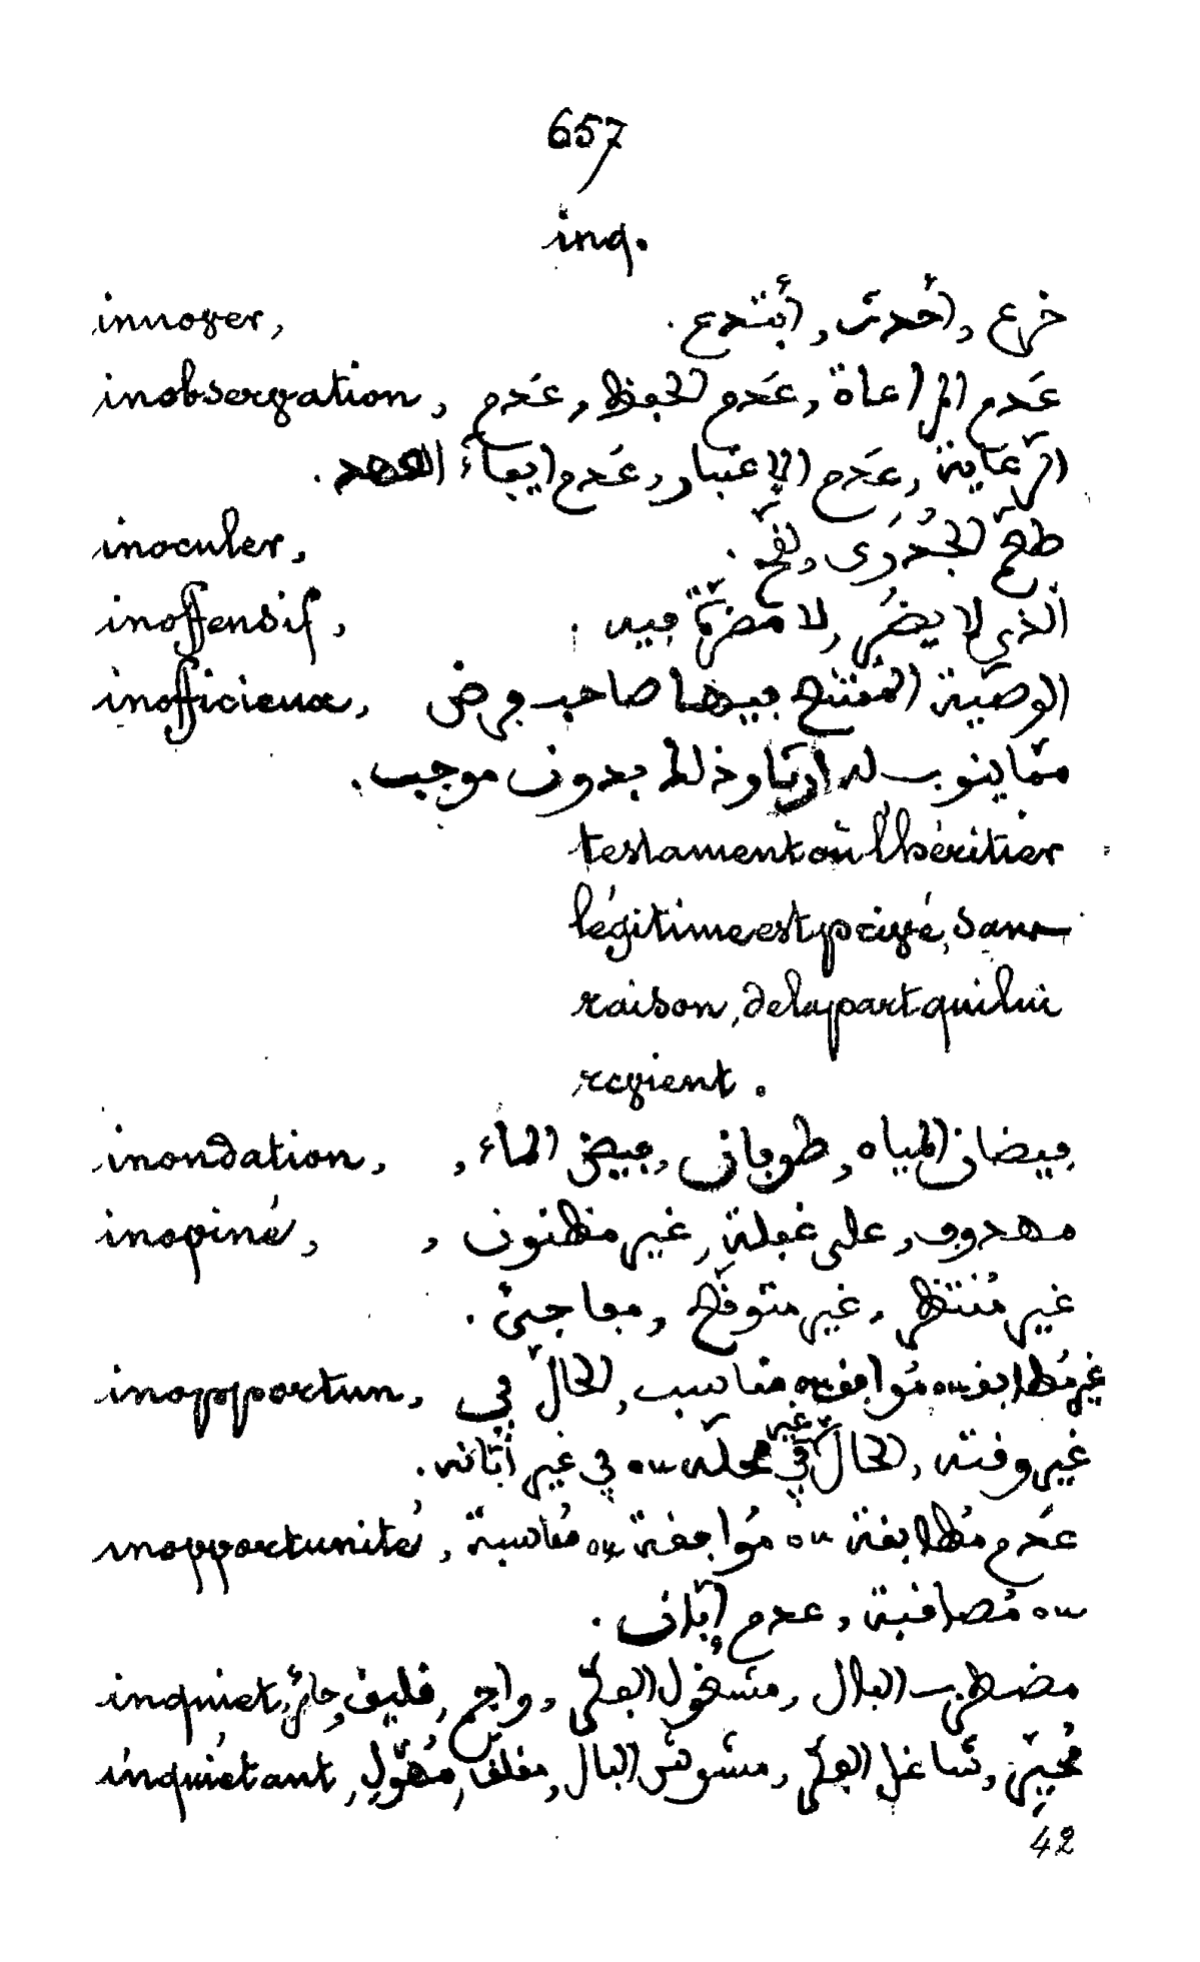 657
inq.
innover, خرع, أحدث, أبتدع.
inobservation, عَدم المراعاة, عَدم الحفظ, عَدم
الرّعاية, عَدم الاعتبار, عَدم ايفاء العهد.
inoculer, طعّم الجُدَرى, لقّح.
inoffensif, الّذى لا يضرّ, لا مضرّة فيه.
inofficieux, الوصيّة المُنتج فيها صاحب فرض
ممّا ينوب له ارثا وذلك بدون موجب.
testament où l'héritier
légitime est privé, sans
raison, de la part qui lui
revient.
inondation, فيضان المياه, طوفان, فيض الماء,
inopiné, مهدوف, على غفلة, غير مظنون,
غير مُنتظر, غير متوقّع, مفاجئ.
inopportun, غير مُطابق ou مُوافق ou مناسب, الحالّ في
غير وقته, الحالّ في غير محلّه ou في غير أبّانه.
inopportunité, عَدم مُطابقة ou مُوافقة ou مُناسبة
ou مُصاقبة, عدم إبّان.
inquiet, مضطرب البال, مشغول الفكر, واجم, قليق, حائر,
inquiétant, مُحيّر, شاغل الفكر, مشوّش البال, مقلق, مُهَوّل,
42